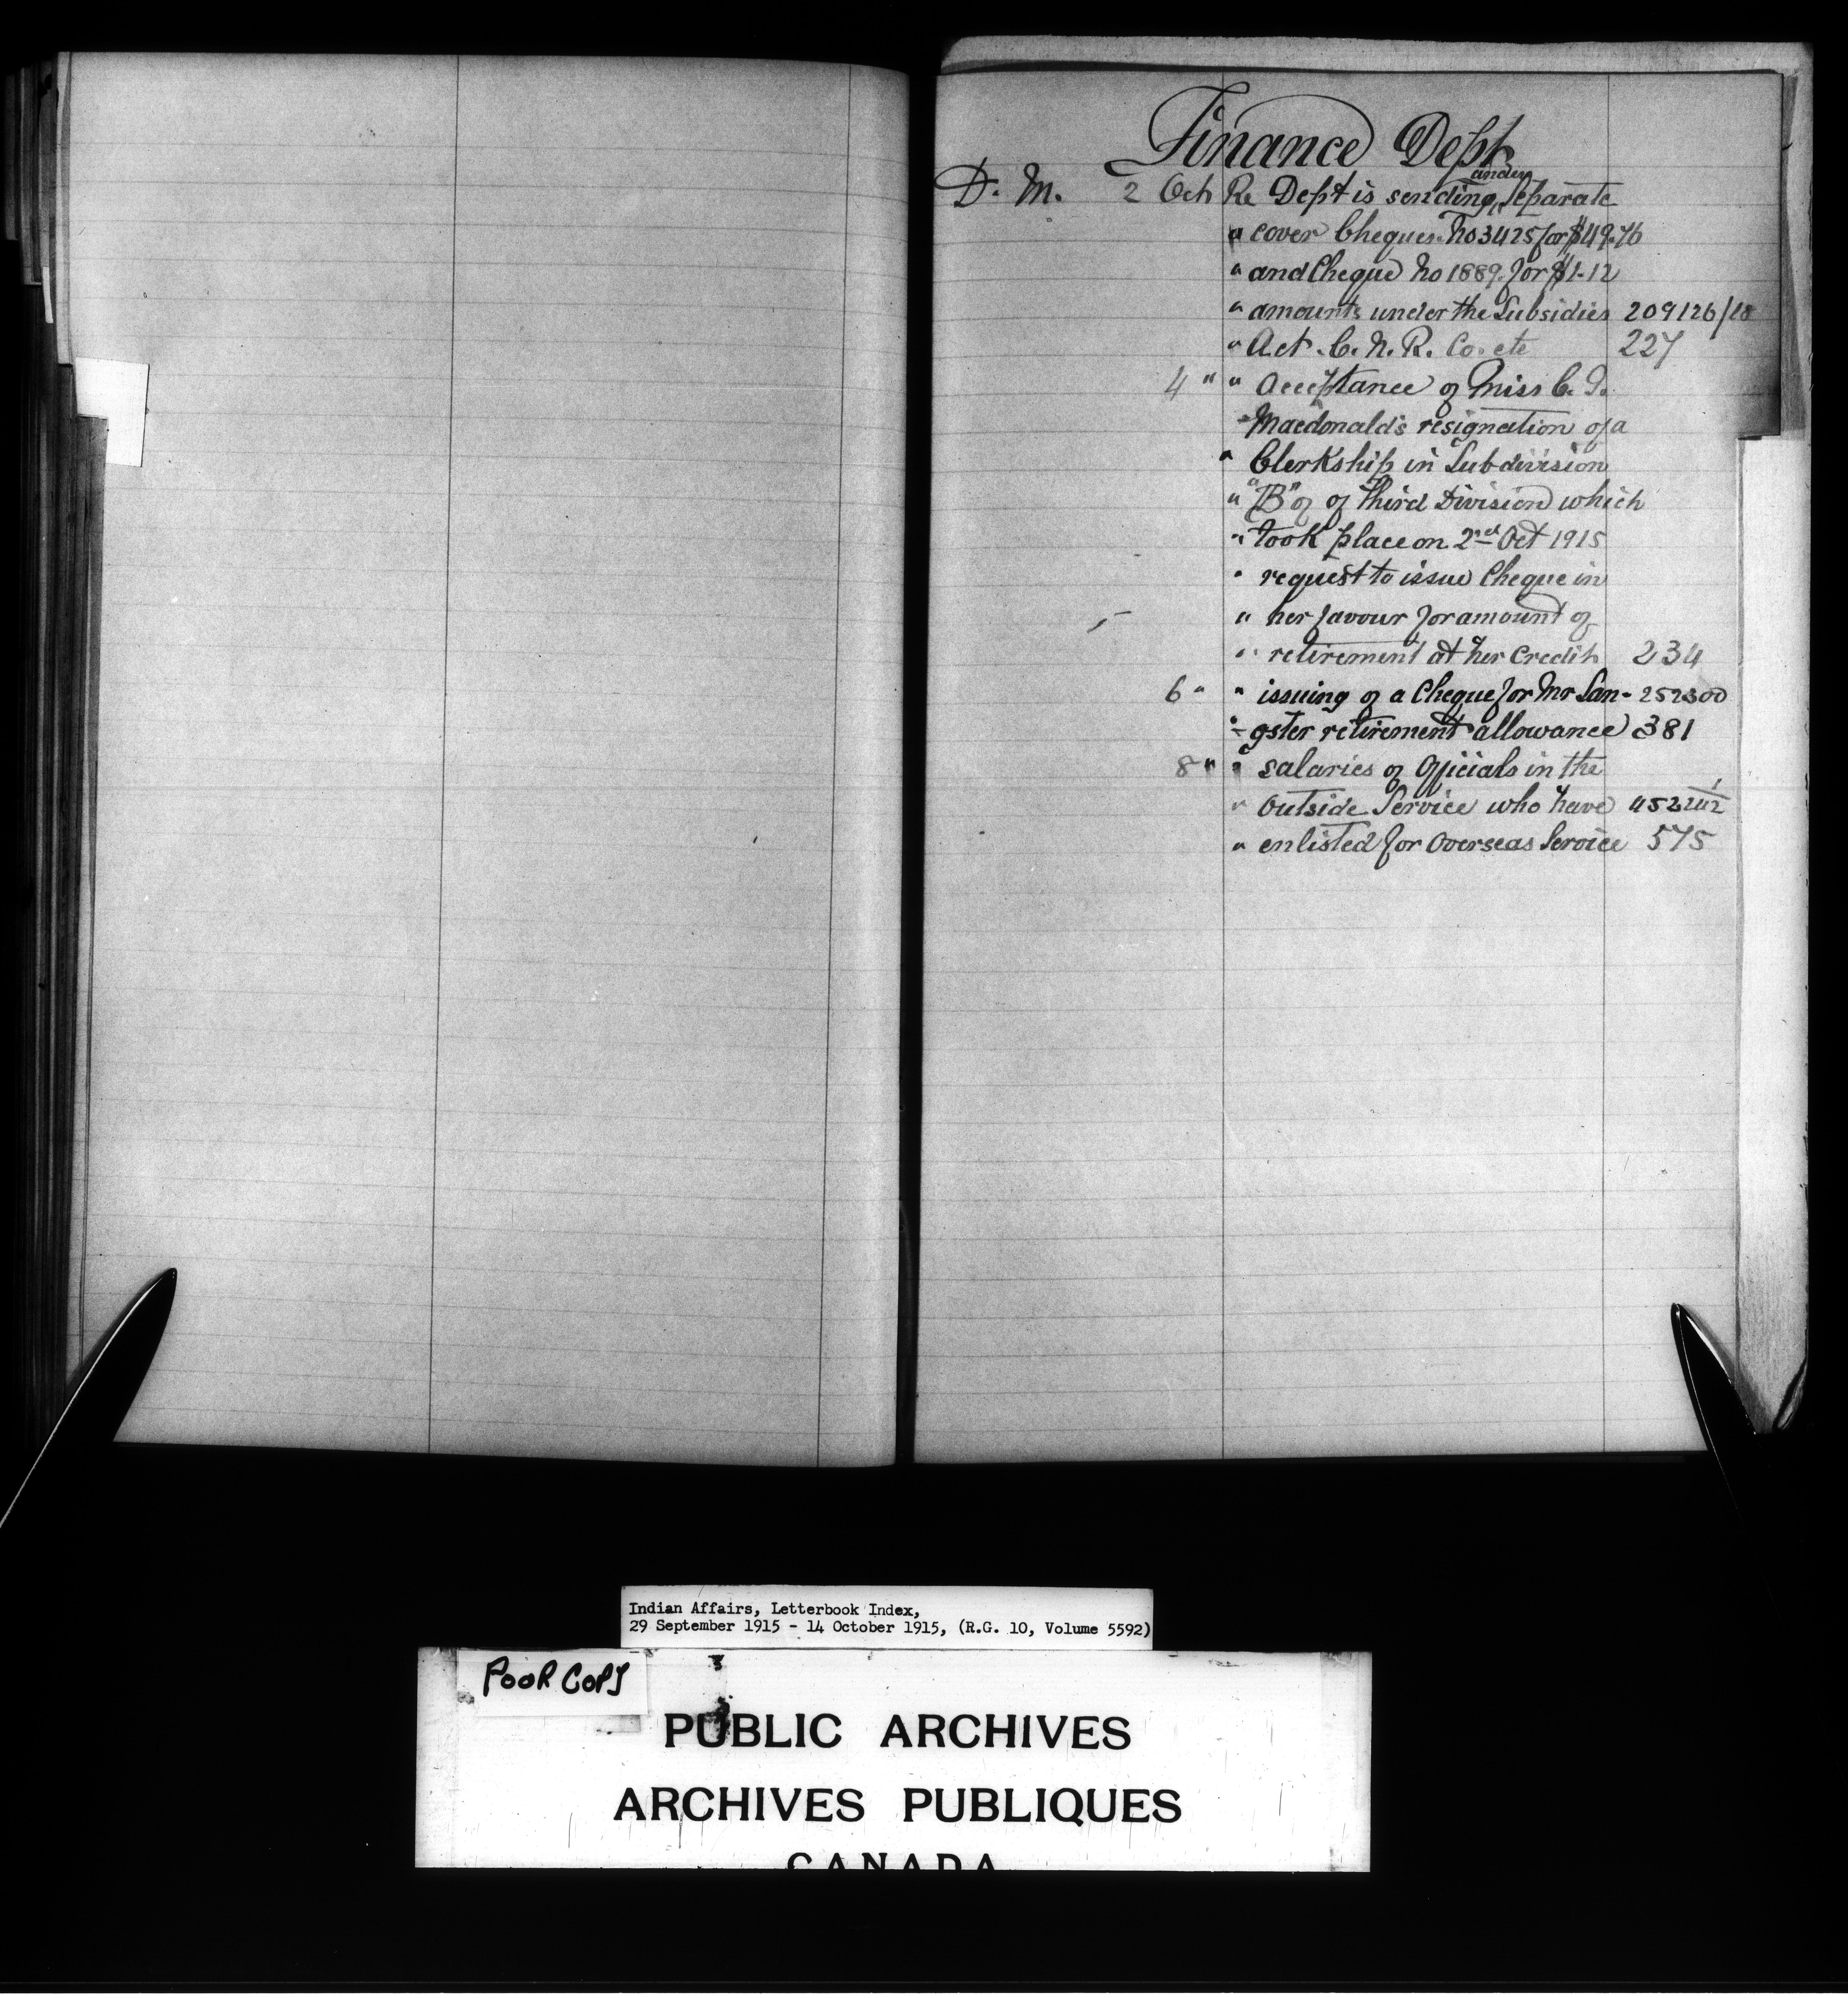 Finance Dept
D. M. 2 Oct Re Dept is sending under separate
" cover Cheques No 3425 for $49.76
" and Cheque No 1889 for $1-12
" amounts under the Subsidies 209126/18
" Act. C. N. R. Co. etc 227
4 " " Acceptance of Miss C. I.
Macdonald's resignation of a
" Clerkship in Subdivision
" "B" of of Third Division which
" took place on 2nd Oct 1915
" request to issue Cheque in
" her favour for amount of
" retirement at her Credit 234
6 " " issuing of a Cheque for Mr San- 252300
" gster retirement allowance 381
8 " " Salaries of Officials in the
" Outside Service who have
" enlisted for Overseas Service 575
Indian Affairs, Letterbook Index,
29 September 1915 - 14 October 1915, (R.G. 10, Volume 5592)
POOR COPY
PUBLIC ARCHIVES
ARCHIVES PUBLIQUES
CANADA